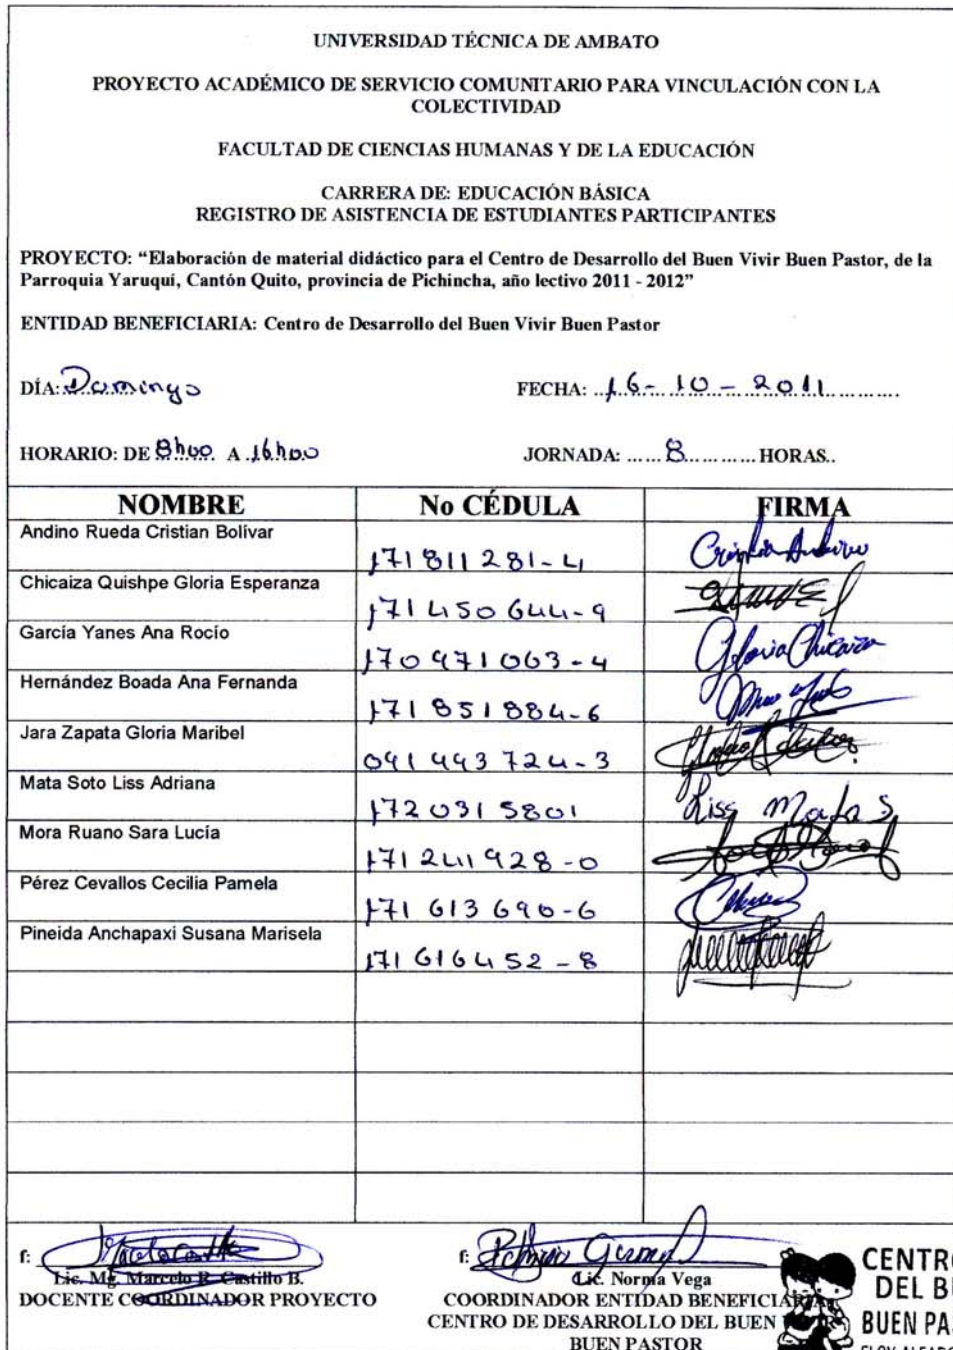 UNIVERSIDAD TÉCNICA DE AMBATO
PROYECTO ACADÉMICO DE SERVICIO COMUNITARIO PARA VINCULACIÓN CON LA
COLECTIVIDAD
FACULTAD DE CIENCIAS HUMANAS Y DE LA EDUCACIÓN
CARRERA DE: EDUCACIÓN BÁSICA
REGISTRO DE ASISTENCIA DE ESTUDIANTES PARTICIPANTES
PROYECTO: “Elaboración de material didáctico para el Centro de Desarrollo del Buen Vivir Buen Pastor, de la
Parroquia Yaruquí, Cantón Quito, provincia de Pichincha, año lectivo 2011 - 2012”
ENTIDAD BENEFICIARIA: Centro de Desarrollo del Buen Vivir Buen Pastor
DÍA: Domingo FECHA: 16-10-2011
HORARIO: DE 8h00 A 16h00 JORNADA: 8 HORAS..
NOMBRE No CÉDULA FIRMA
Andino Rueda Cristian Bolívar 171811281-4
Chicaiza Quishpe Gloria Esperanza 171450644-9
García Yanes Ana Rocío 170971063-4 Gloria Chicaiza
Hernández Boada Ana Fernanda 171851884-6
Jara Zapata Gloria Maribel 091493724-3
Mata Soto Liss Adriana 1720315801 Liss Mata S
Mora Ruano Sara Lucía 171241928-0
Pérez Cevallos Cecilia Pamela 171613690-6
Pineida Anchapaxi Susana Marisela 171616452-8
f: f:
Lic. Mg. Marcelo R. Castillo B. Lic. Norma Vega
DOCENTE COORDINADOR PROYECTO COORDINADOR ENTIDAD BENEFICIARIA
CENTRO DE DESARROLLO DEL BUEN
BUEN PASTOR
CENTRO
DEL BU
BUEN PAS
ELOY ALFARO